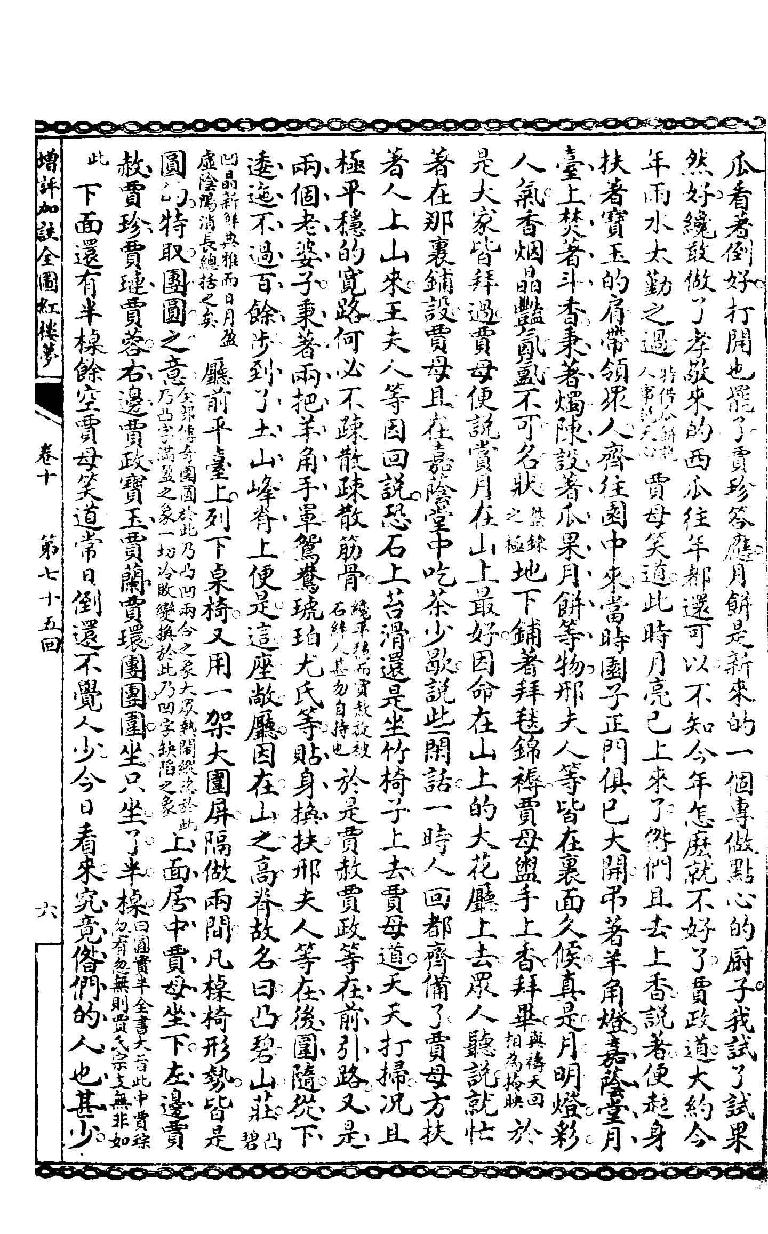 瓜看著倒好打開也罷了賈珍答應月餅是新來的一個專做點心的厨子我試了試果
然好纔敢做了孝敬來的西瓜往年都還可以不知今年怎麼就不好了賈政道大約今
年雨水太勤之過 賈母笑道此時月亮已上來了俗們且去上香說著便起身
扶著寶玉的肩帶領眾人齊往園中來當時園子正門俱已大開弔著羊角燈嘉蔭堂月
臺上焚著斗香秉著燭陳設著瓜果月餅等物邢夫人等皆在裏面久候真是月明燈彩
人氣香烟晶豔氤氳不可名狀 之極 地下鋪著拜毯錦褥賈母盥手上香拜畢 與禱天回相為掩映 於
是大家皆拜過賈母便說賞月在山上最好因命在山上的大花廳上去眾人聽說就忙
著在那裏鋪設賈母且在嘉蔭堂中吃茶少歇說些閑話一時人回都齊備了賈母方扶
著人上山來王夫人等因回說恐石上苔滑還是坐竹椅子上去賈母道天天打掃况且
極平穩的寬路何必不疎散疎散筋骨 石絆人甚勿自恃也 於是賈赦賈政等在前引路又是
兩個老婆子秉著兩把羊角手罩鴛鴦琥珀尤氏等貼身攙扶邢夫人等在後圍隨從下
逶迤不過百餘步到了土山峰脊上便是這座敞廳因在山之高脊故名曰凸碧山莊 凸碧
凹晶新鮮典雅而日月盈虛陰陽消長總括之矣 廳前平臺上列下桌椅又用一架大圍屏隔做兩間凡棹椅形勢皆是
圓的特取團圓之意 全部傳奇團圓於此乃凸凹兩合之象大眾熱鬧縱 於此乃凸字滿盈之象一切冷敗變換於此乃凹字缺陷之象 上面居中賈母坐下左邊賈
赦賈珍賈璉賈蓉右邊賈政寶玉賈蘭賈環團團圍坐只坐了半棹 曰圓曰半全書大旨此中賈琮忽有忽無則賈氏宗支無非如
此 下面還有半棹餘空賈母笑道常日倒還不覺人少今日看來究竟俗們的人也甚少
增評加註全圖紅樓夢 卷十 第七十五回 六